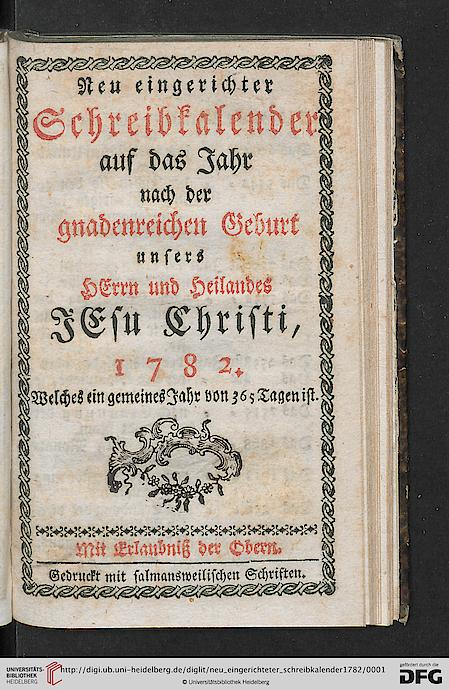 Neu eingerichter
Schreibkalender
auf das Jahr
nach der
gnadenreichen Geburt
unsers
HErrn und Heilandes
JEsu Christi,
1782.
Welches ein gemeines Jahr von 365 Tagen ist.
Mit Erlaubniß der Obern.
Gedruckt mit salmansweilischen Schriften.
UNIVERSITÄTS-
BIBLIOTHEK
HEIDELBERG
http://digi.ub.uni-heidelberg.de/diglit/neu_eingerichteter_schreibkalender1782/0001
© Universitätsbibliothek Heidelberg
gefördert durch die
DFG